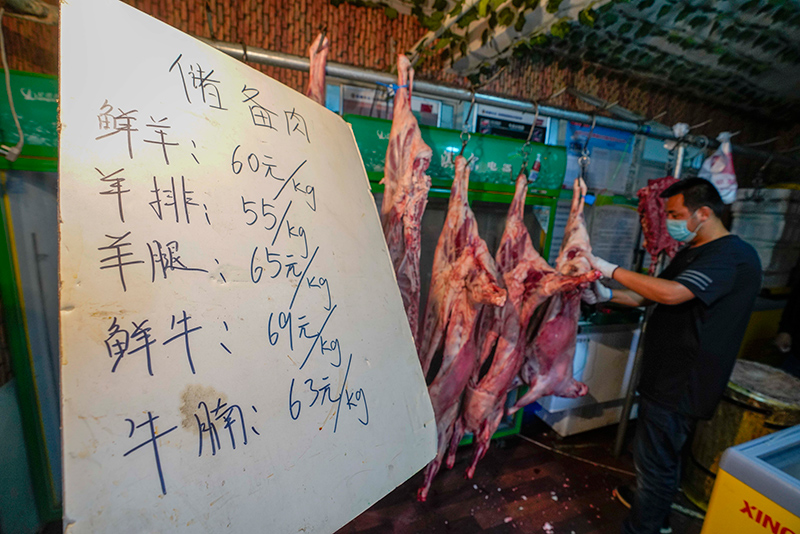 储备肉
鲜羊: 60元/kg
羊排: 55/kg
羊腿: 65元/kg
鲜牛: 69元/kg
牛腩: 63元/kg
XING